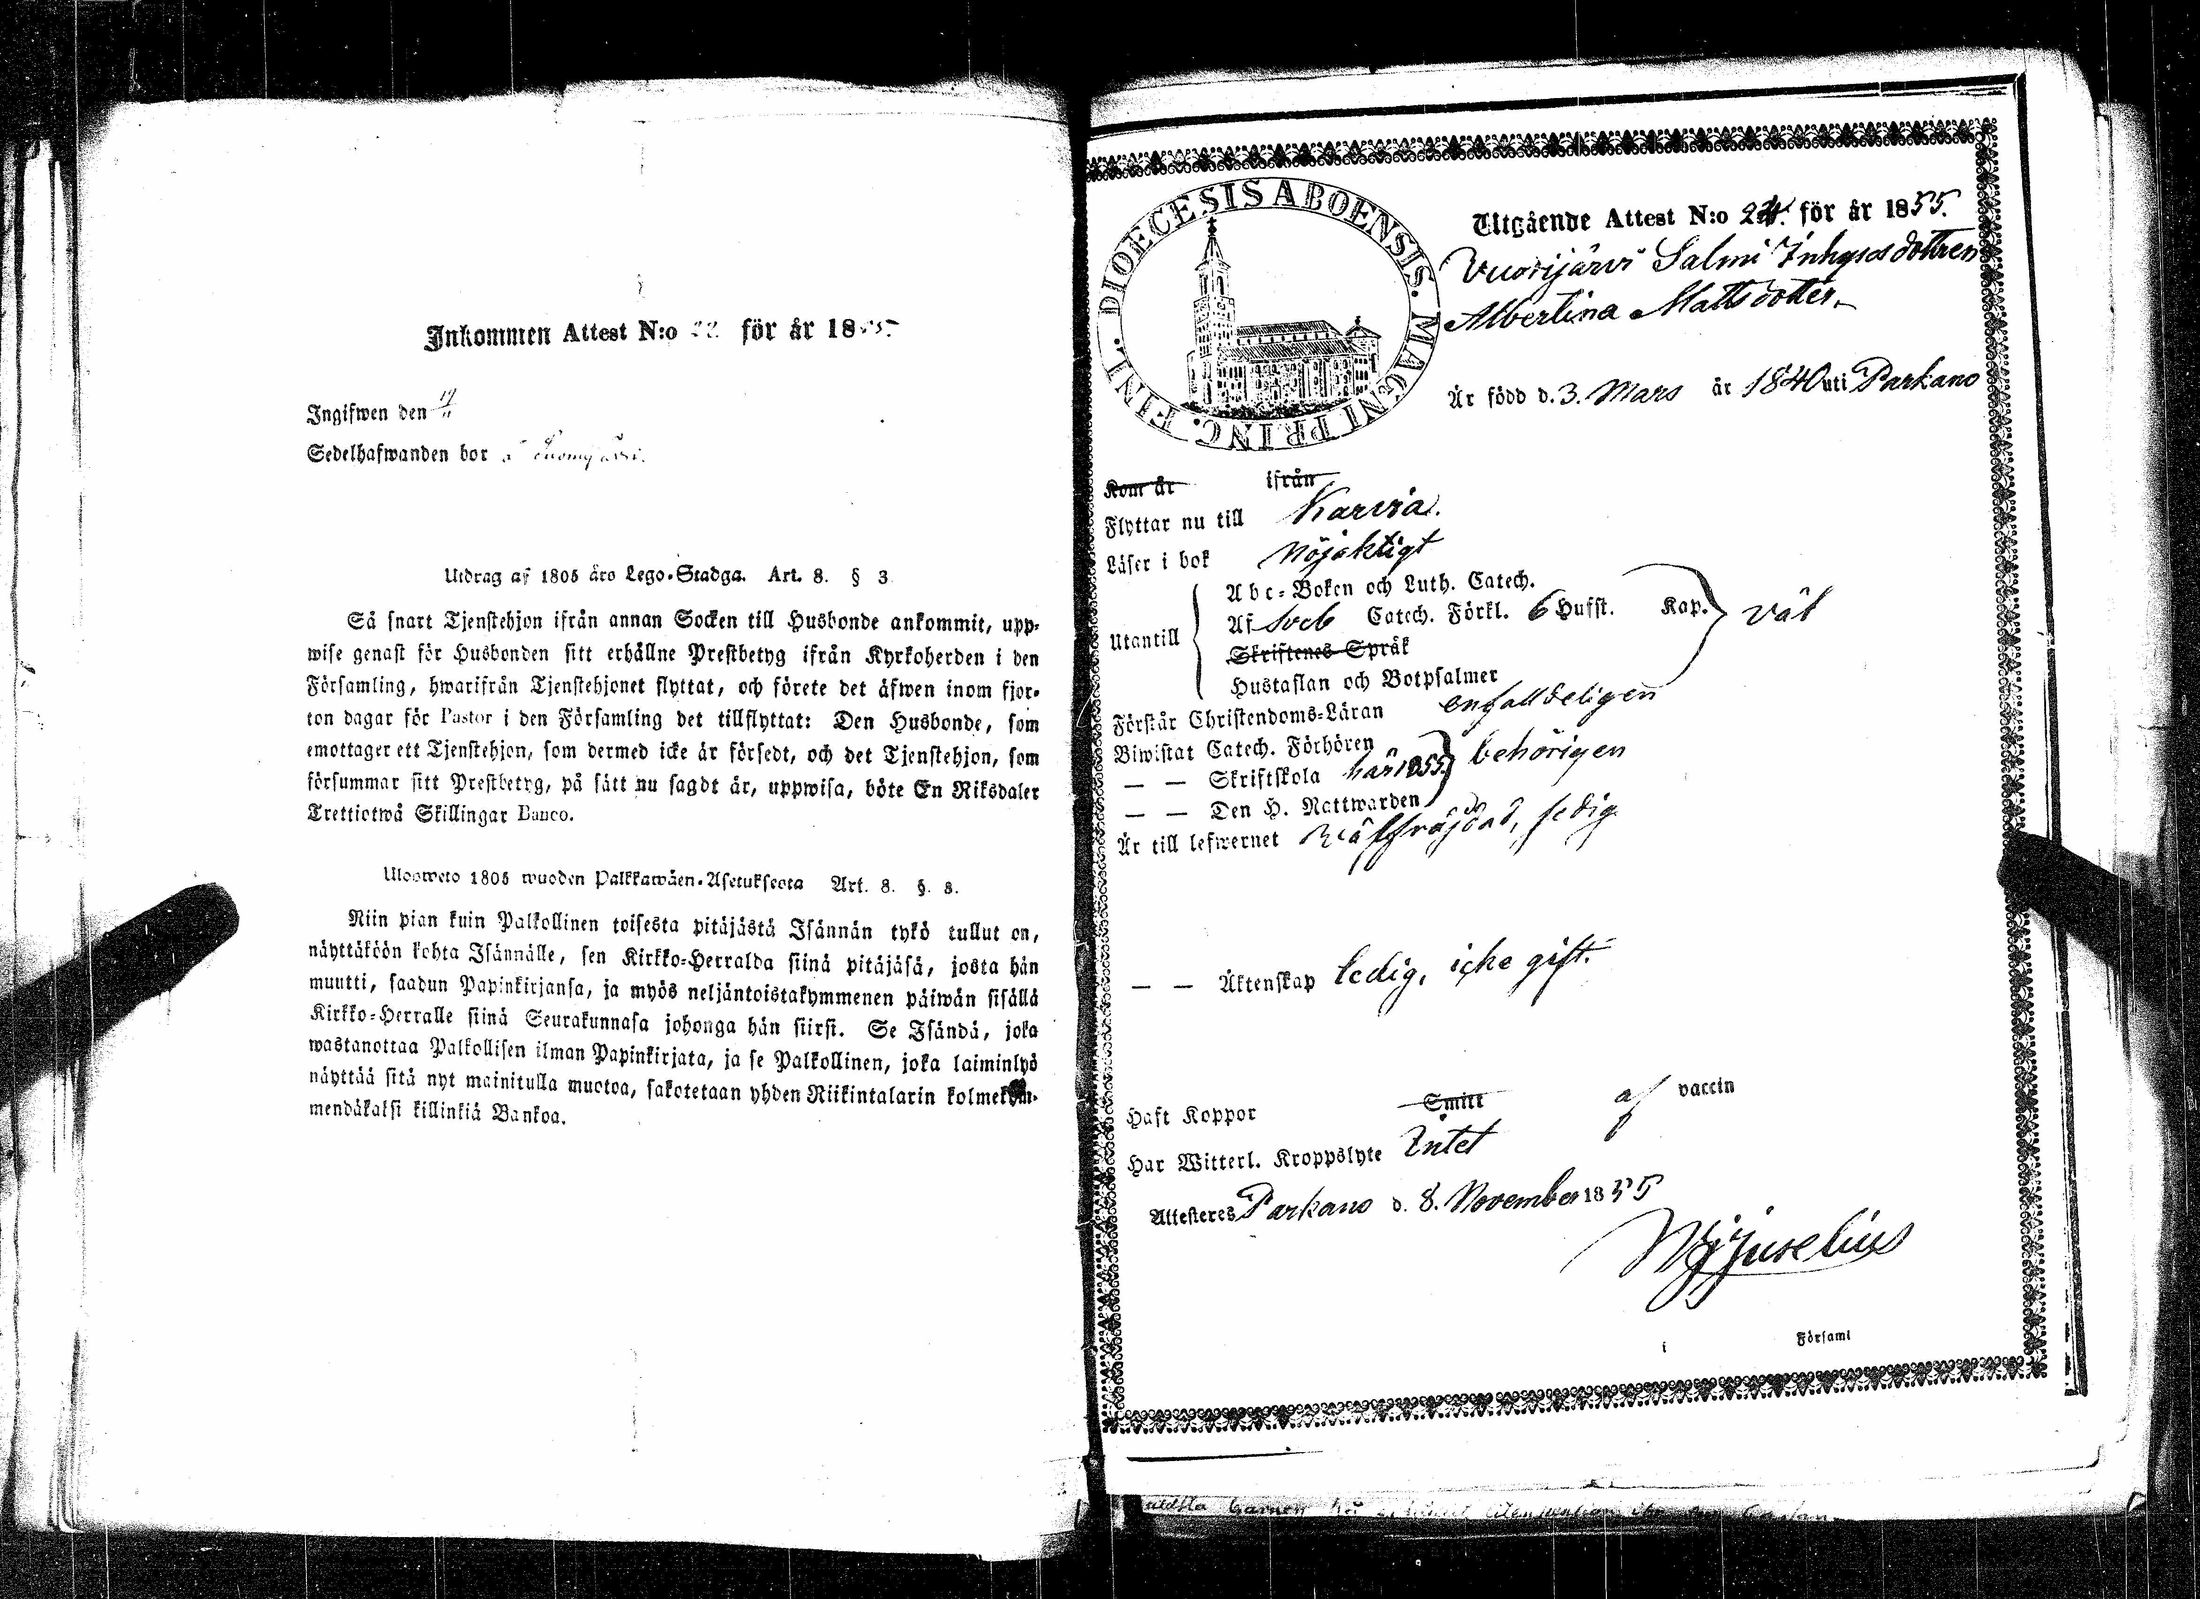 Inkommen Attest N:o 22. för år 1855.
Ingifwen den 19/11
Sedelhafwanden bor
Utdrag af 1805 års Lego-Stadga. Art. 8. § 3
Så snart Tjenstehjon ifrån annan Socken till Husbonde ankommit, upp-
wise genast för Husbonden sitt erhållne Prestbetyg ifrån Kyrkoherden i den
Församling, hwarifrån Tjenstehjonet flyttat, och förete det äfwen inom fjor-
ton dagar för Pastor i den Församling det tillflyttat: Den Husbonde, som
emottager ett Tjenstehjon, som dermed icke är försedt, och det Tjenstehjon, som
försummar sitt Prestbetyg, på sätt nu sagdt är, uppwisa, böte En Riksdaler
Trettiotwå Skillingar Banco.
Ulosweto 1805 wuoden Palkkawäen-Asetuksesta Art. 8. §. 3.
Niin pian kuin Palkollinen toisesta pitäjästä Isännän tykö tullut on,
näyttäköön kohta Isännälle, sen Kirkko-Herralda siinä pitäjäsä, josta hän
muutti, saadun Papinkirjansa, ja myös neljäntoistakymmenen päiwän sisällä
Kirkko-Herralle siinä Seurakunnasa johonga hän siirsi. Se Isändä, joka
wastanottaa Palkollisen ilman Papinkirjata, ja se Palkollinen, joka laiminlyö
näyttää sitä nyt mainitulla muotoa, sakotetaan yhden Riikintalarin kolmekym-
mendäkaksi killinkiä Bankoa.
DIOECESIS ABOENSIS. MAGNI PRINC. FINL.
Utgående Attest N:o 24. för år 1855.
Vuorijärvi Salmi Inhyses dottren
Albertina Mattsdotter
Är född d. 3. Mars år 1840 uti Parkano
Kom år ifrån
Flyttar nu till Karvia.
Läser i bok nöjaktigt
Utantill
Abc-Boken och Luth. Catech.
Af Sveb Catech. Förkl. 6 Hufst. Kap. väl
Skriftenes Språk
Hustaflan och Botpsalmer
Förstår Christendoms-Läran enfalldeligen
Biwistat Catech. Förhören
— — Skriftskola här 1855. behörigen
— — Den H. Nattwarden
Är till lefwernet wälfräjdad, ledig
— — Äktenskap ledig, icke gift.
Haft Koppor Smitt af vaccin
Har Witterl. Kroppslyte Intet
Attesteres Parkano d. 8. November 1855
Juselius
i Församl